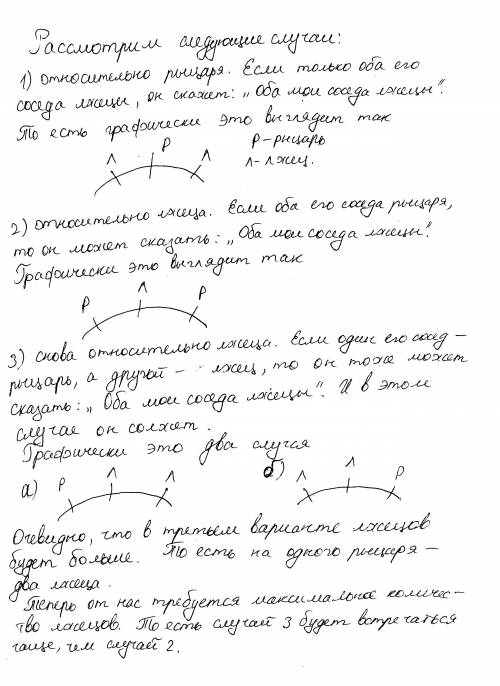 Рассмотрим следующие случаи:
1) относительно рыцаря. Если только оба его
соседа лжецы, он скажет: „Оба мои соседа лжецы".
То есть графически это выглядит так
Л Р Л Р-рыцарь
Л-лжец.
2) относительно лжеца. Если оба его соседа рыцаря,
то он может сказать: „Оба мои соседа лжецы".
Графически это выглядит так
Р Л Р
3) снова относительно лжеца. Если один его сосед –
рыцарь, а другой – лжец, то он тоже может
сказать: „Оба мои соседа лжецы". И в этом
случае он солжет.
Графически это два случая
а) Р Л Л б) Л Л Р
Очевидно, что в третьем варианте лжецов
будет больше. То есть на одного рыцаря –
два лжеца.
Теперь от нас требуется максимальное количе-
тво лжецов. То есть случай 3 будет встречаться
чаще, чем случай 2.